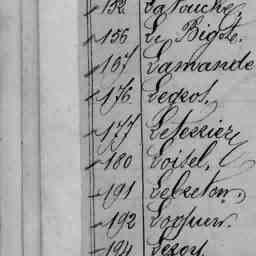 152 Latouche
156 Le Bigot.
167 Lamande
176 Legros,
177 Letessier
180 Loisel,
191 Lebreton,
192
194 Leroy.